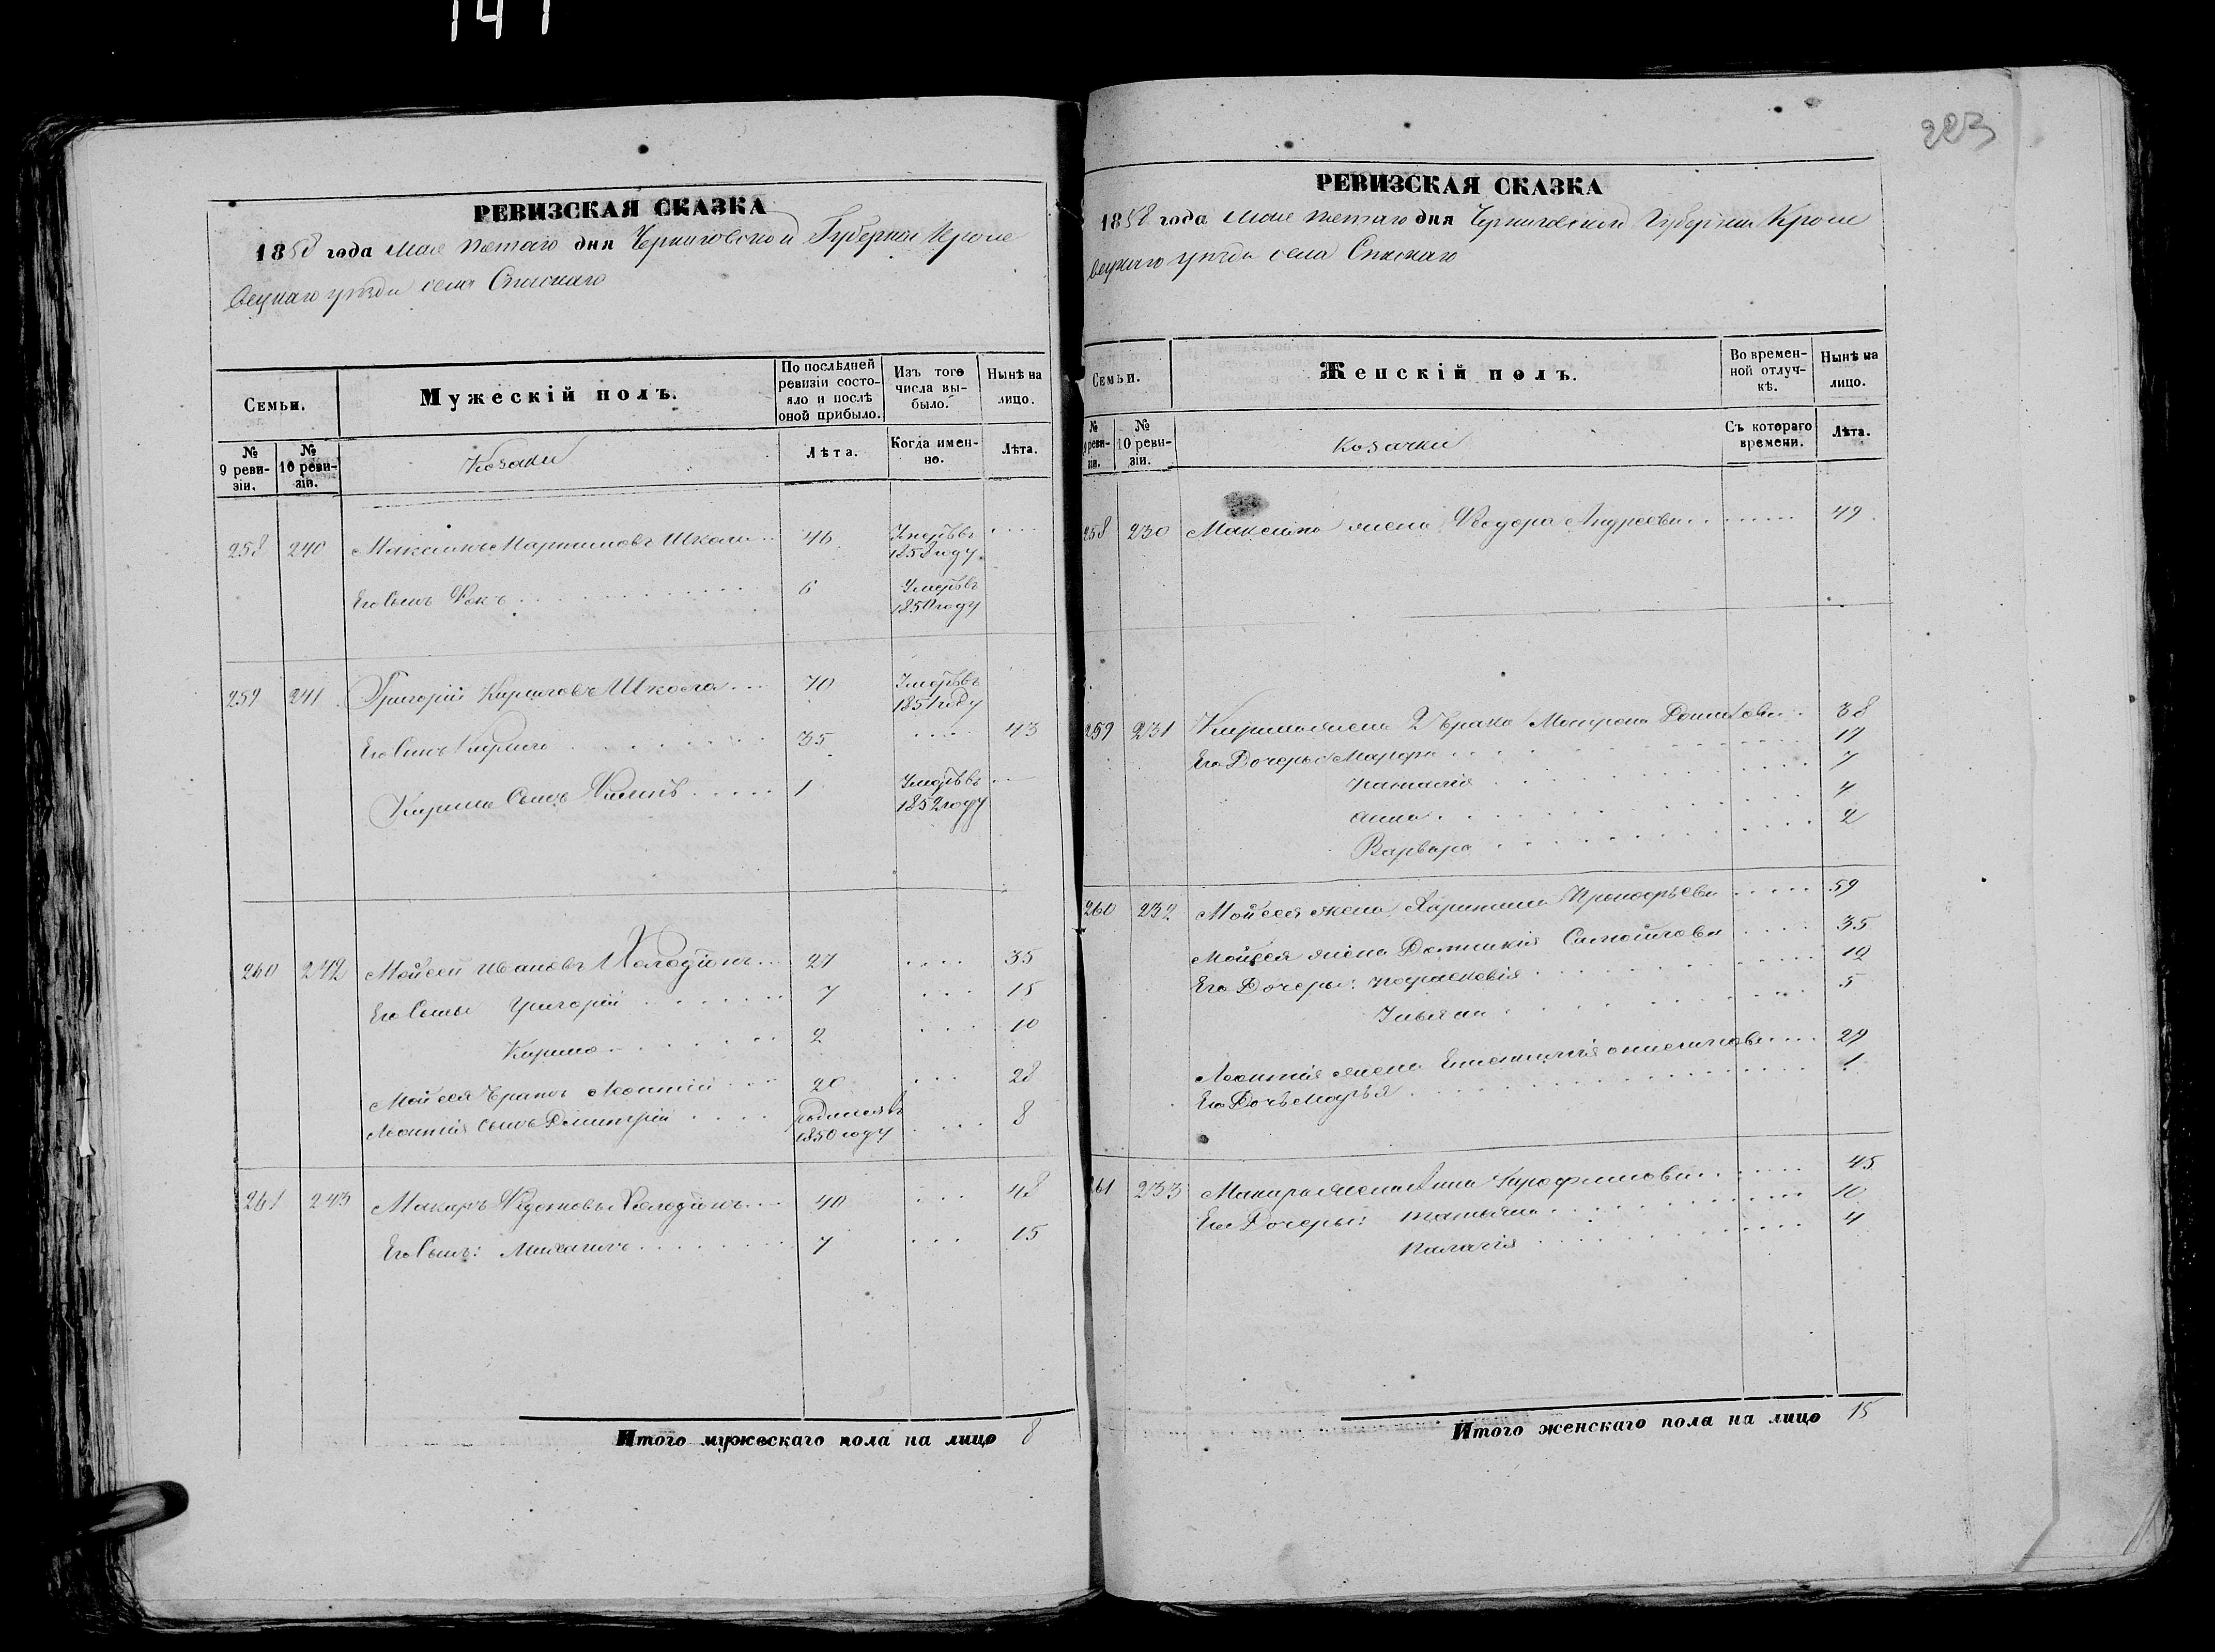 141
223
РЕВИЗСКАЯ СКАЗКА
1858 года Мая пятаго дня Черниговской Губернии Кроле
вецкаго уѣзда села Спаскаго
Семьи.
Мужескій полъ.
По послѣдней ревизіи состояло и послѣ оной прибыло.
Изъ того числа выбыло.
Нынѣ на лицо.
№ 9 ревизіи.
№ 10 ревизіи.
Козаки
Лѣта.
Когда именно.
Лѣта.
258 240 Максимъ Мартиновъ Школа 46 Умеръ въ 1858 году
Его Сынъ 6 Умеръ въ 1850 году
259 241 Григорій Кириловъ Школа 70 Умеръ въ 1851 году
Его Сынъ Кирило 35 43
Кирила Сынъ 1 Умеръ въ 1852 году
260 242 Мойсей Ивановъ Холодіонъ 27 35
Его Сыны Григорій 7 15
Кирило 2 10
Мойсея братъ Леонтій 20 28
Леонтія Сынъ Димитрій родился въ 1850 году 8
261 243 Макаръ Федотовъ Холодіонъ 40 48
Его Сынъ: Михаилъ 7 15
Итого мужескаго пола на лицо 8
РЕВИЗСКАЯ СКАЗКА
1858 года Мая пятаго дня Черниговской Губернии Кроле
вецкаго уѣзда села Спаскаго
Семьи.
Женскій полъ.
Во временной отлучкѣ.
Нынѣ на лицо.
№ 9 ревизіи.
№ 10 ревизіи.
Козачки
Съ котораго времени.
Лѣта.
258 230 Максима жена Федора Андреева 49
259 231 Кирила жена 2 брака Матрона 38
Его Дочеры: Марфа 17
Наталія 7
Анна 4
Варвара 2
260 232 Мойсея жена Харитина Прокофьева 59
Мойсея жена Домникія Самойлова 35
Его Дочеры: Параскевія 12
Ульяна 5
Леонтія жена 29
Его Дочь Марья 1
261 233 Макара жена Анна 45
Его Дочеры: Татьяна 10
Палагія 4
Итого женскаго пола на лицо 15